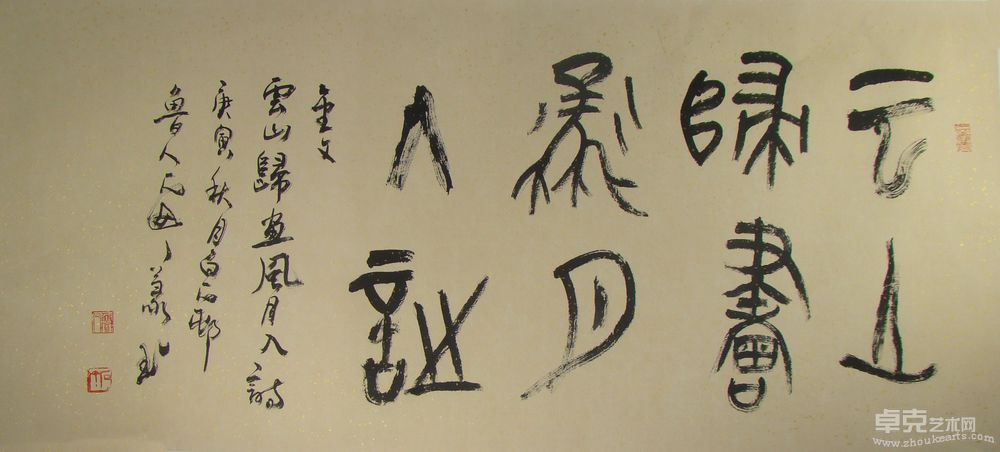 云山
歸畫
風月
入詩
金文
雲山歸畫風月入詩
庚寅秋月
魯人
卓克艺术网
www.zhoukearts.com